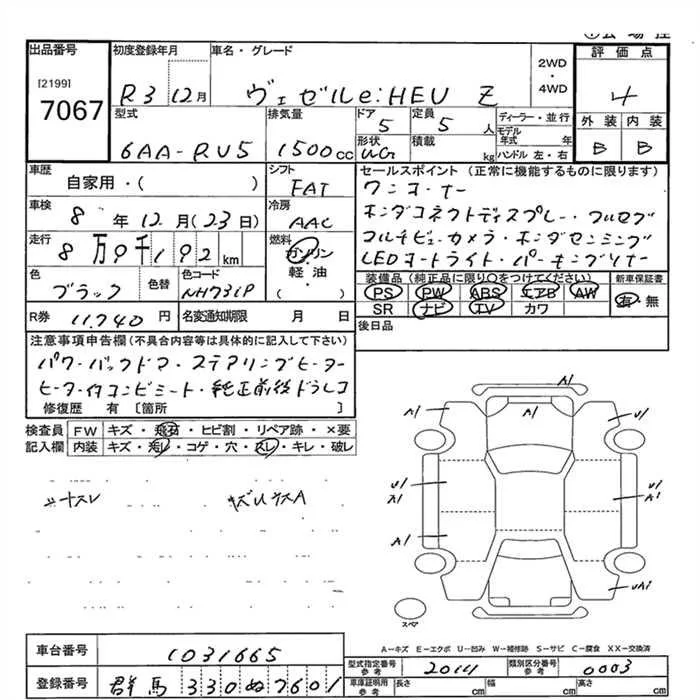 出品番号 初度登録年月 車名・グレード 2WD・4WD 評価点
[2199]
7067 R3 12月 ヴェゼルe:HEV Z 4
型式 排気量 ドア 定員 ディーラー・並行 外装 内装
6AA-RU5 1500cc 5 5人 モデル年式 年 B B
形状 積載 kg ハンドル 左・右
車歴 シフト セールスポイント(正常に機能するものに限ります)
自家用・( ) FAT ワンオーナー
車検 冷房 ホンダコネクトディスプレー・フルセグ
8年12月(23日) AAC マルチビューカメラ・ホンダセンシング
走行 燃料 LEDオートライト・パーキングソナー
8万9千192km ガソリン・軽油・( )
色 色替 色コード 装備品(純正品に限り○をつけてください) 新車保証書
ブラック NH731P PS PW ABS エアB AW 有・無
SR ナビ TV カワ
R券 11,740円 名変通知期限 月 日 後日品
注意事項申告欄(不具合内容等は具体的に記入して下さい)
パワーバックドア・ステアリングヒーター
ヒーター付コンビシート・純正前後ドラレコ
修復歴 有〔箇所 〕
検査員 FW キズ・飛石・ヒビ割・リペア跡・×要
記入欄 内装 キズ・汚レ・コゲ・穴・スレ・キレ・破レ
A1
A1 U1
U1 U1
A1
A1
UA1
スペア
A-キズ E-エクボ U-凹み W-補修跡 S-サビ C-腐食 XX-交換済
車台番号 1031665 型式指定番号 参考 20141 類別区分番号 参考 0003
登録番号 群馬330ぬ7601 車庫証明用 参考 長さ cm 幅 cm 高さ cm